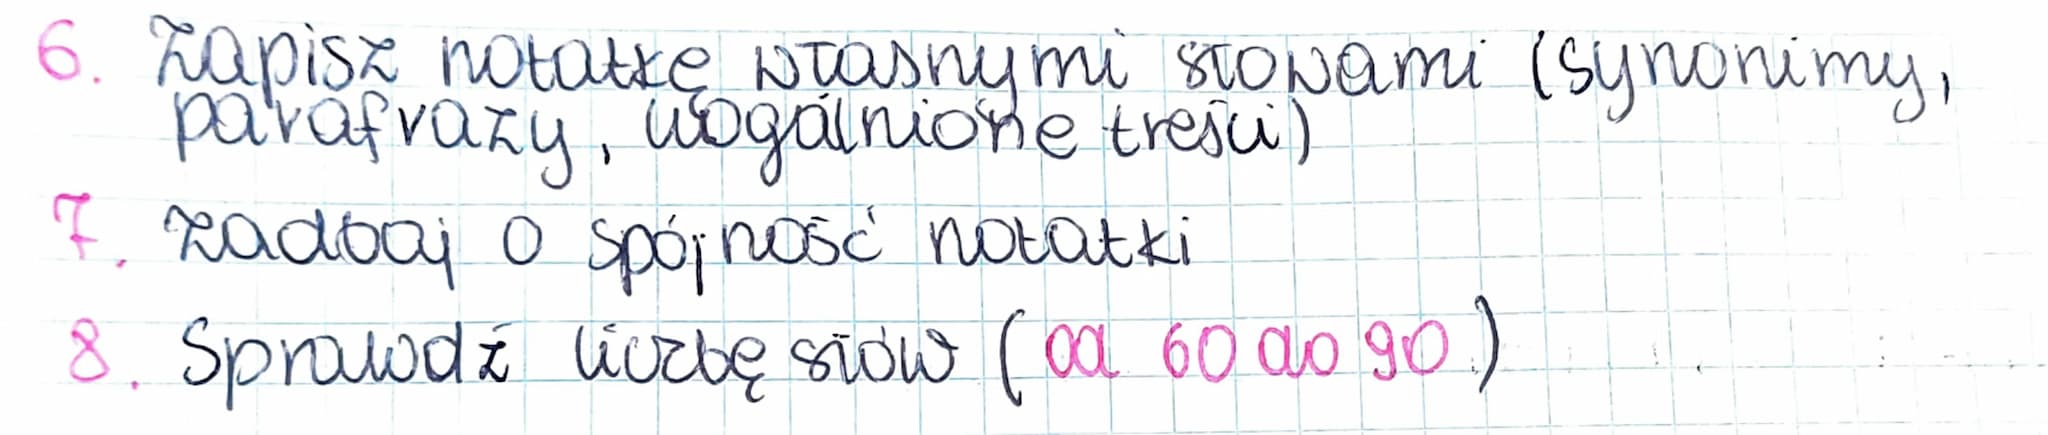 6. Zapisz notatkę własnymi słowami (synonimy,
parafrazy, uogólnione treści)
7. Zadbaj o spójność notatki
8. Sprawdź liczbę słów (od 60 do 90)